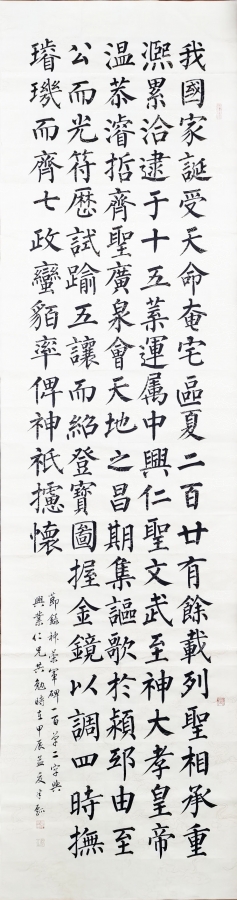 我國家誕受天命奄宅區夏二百廿有餘載列聖相承重
熈累洽逮于十五葉運属中興仁聖文武至神大孝皇帝
温恭濬哲齊聖廣泉會天地之昌期集謳歌於潁邸由至
公而光符歴試踰五讓而紹登寶圖握金鏡以調四時撫
璿璣而齊七政蠻貊率俾神祇攄懷
節錄神策軍碑一百單二字與
興業仁兄共勉時在甲辰孟夏